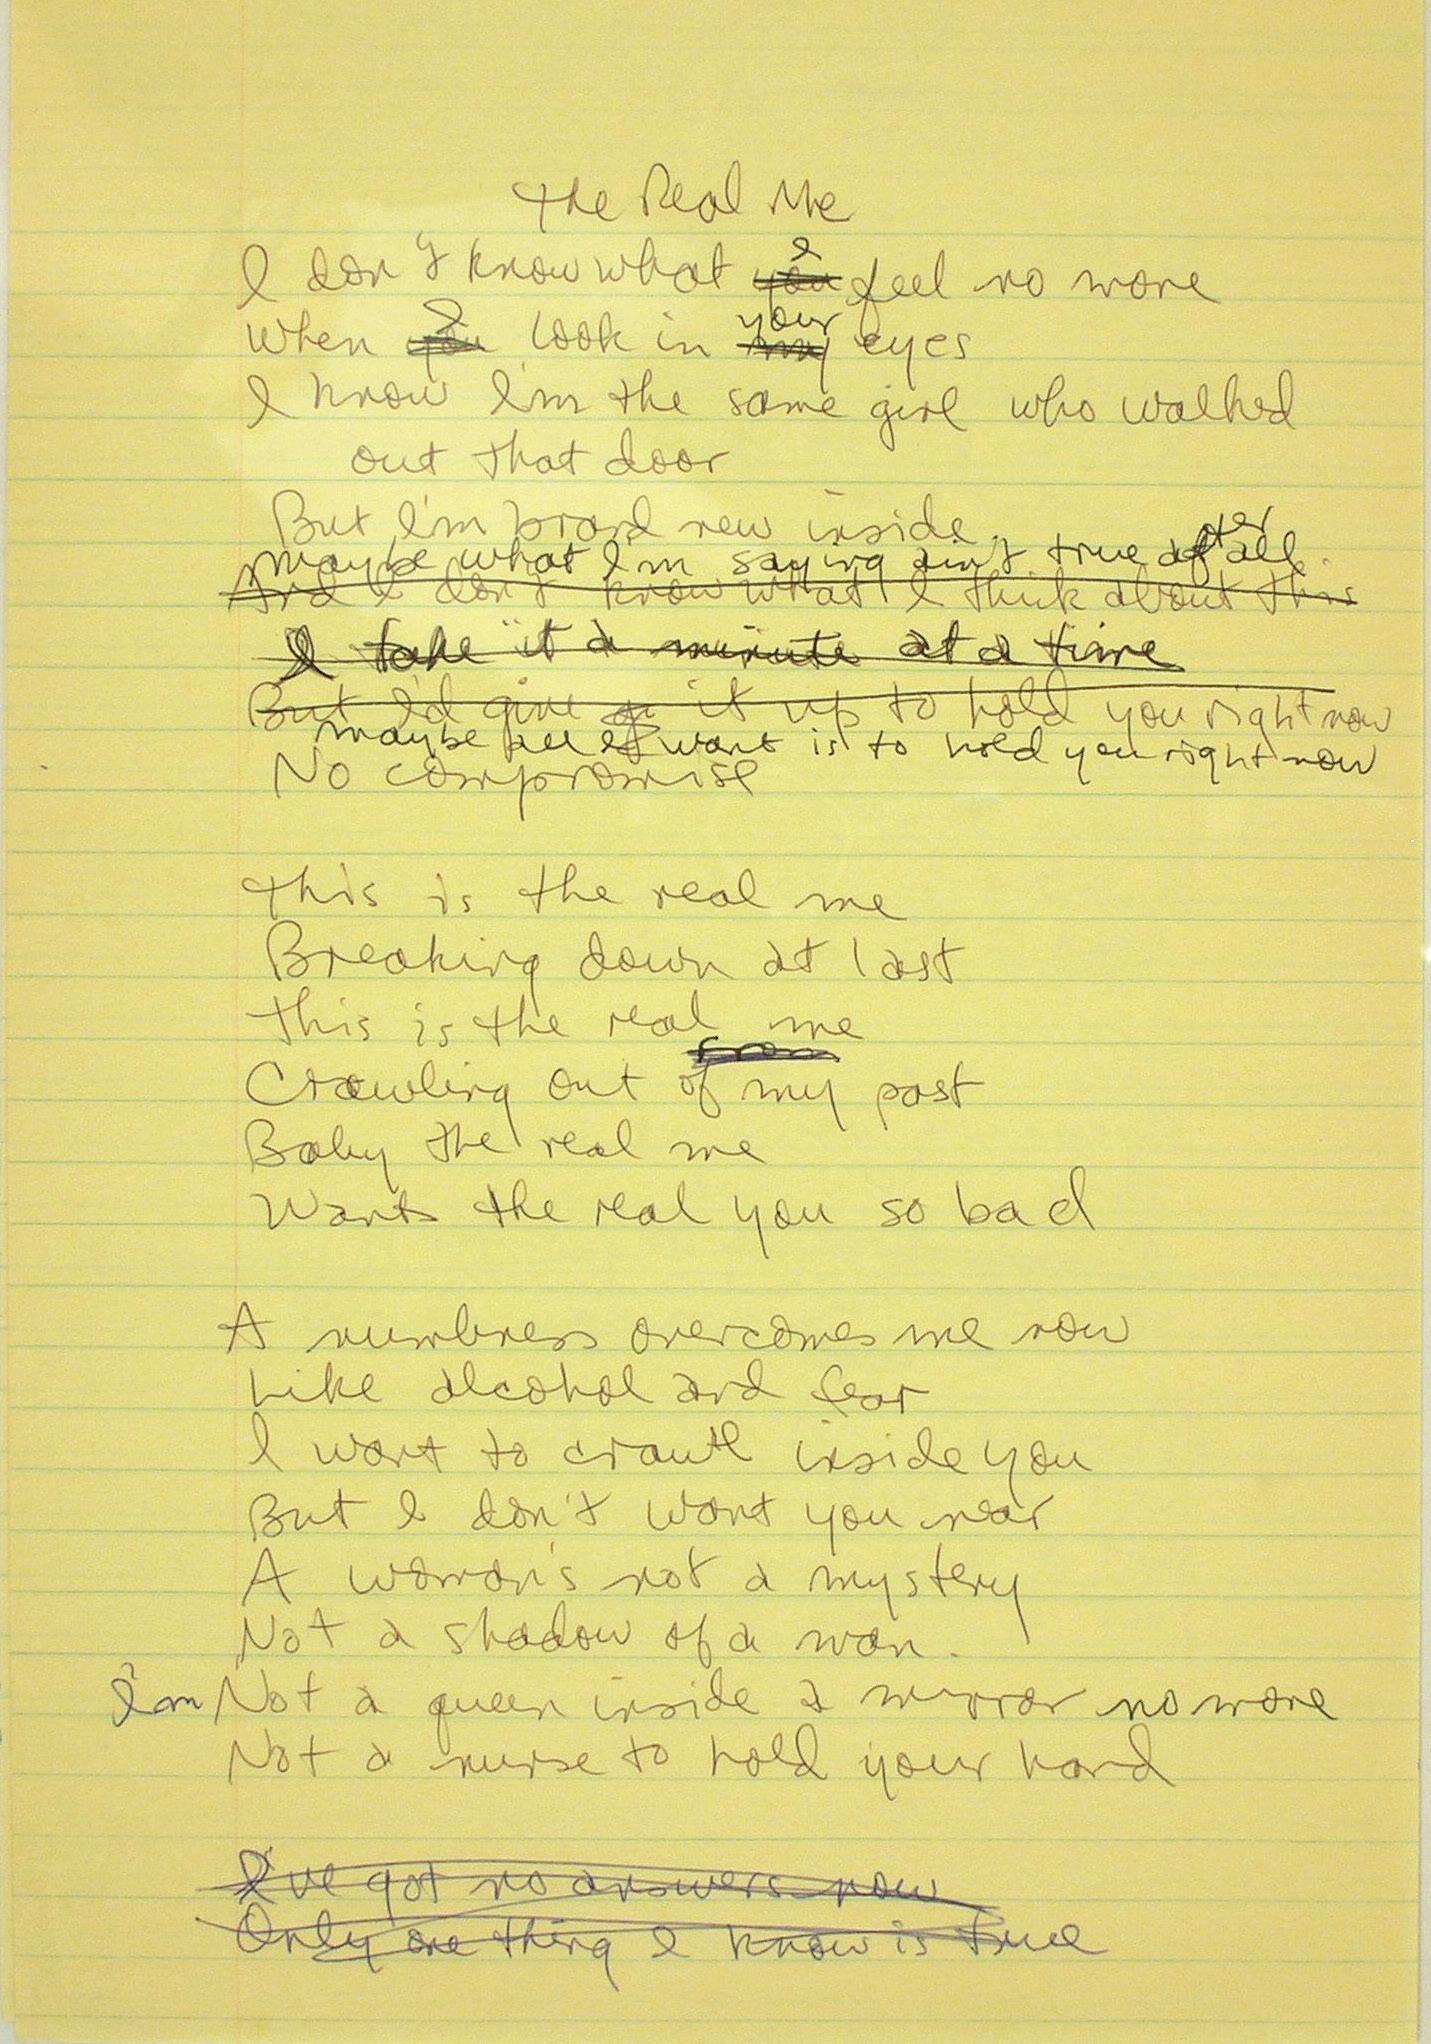 The Real Me
I
I don't know what you feel no more
I your
When you look in my eyes
I know I'm the same girl who walked
out that door
But I'm brand new inside.
maybe what I'm saying ain't true after all
And I don't know what I think about this
I take it a minute at a time
But I'd give it up to hold you right now
maybe all I want is to hold you right now
No compromise
This is the real me
Breaking down at last
This is the real me
from
Crawling out of my past
Baby the real me
Wants the real you so bad
A numbness overcomes me now
Like alcohol and fear
I want to crawl inside you
But I don't want you near
A woman's not a mystery
Not a shadow of a man.
I'm Not a queen inside a mirror no more
Not a nurse to hold your hand
I've got no answers now
Only one thing I know is true